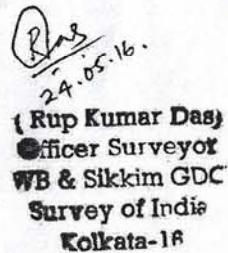 Das
24.05.16.
( Rup Kumar Das)
Officer Surveyor
WB & Sikkim GDC
Survey of India
Kolkata-16